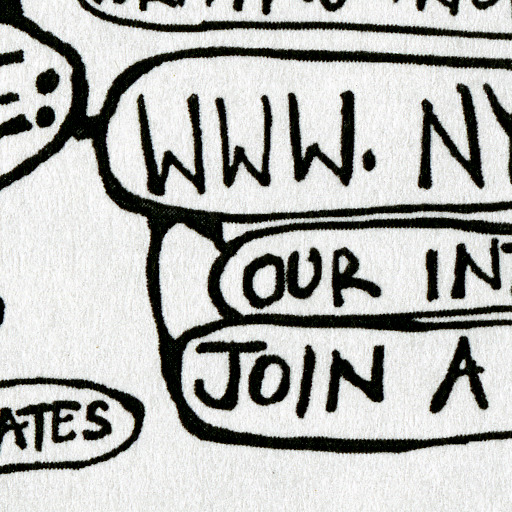 E:
WWW. NY
OUR INT
JOIN A
ATES